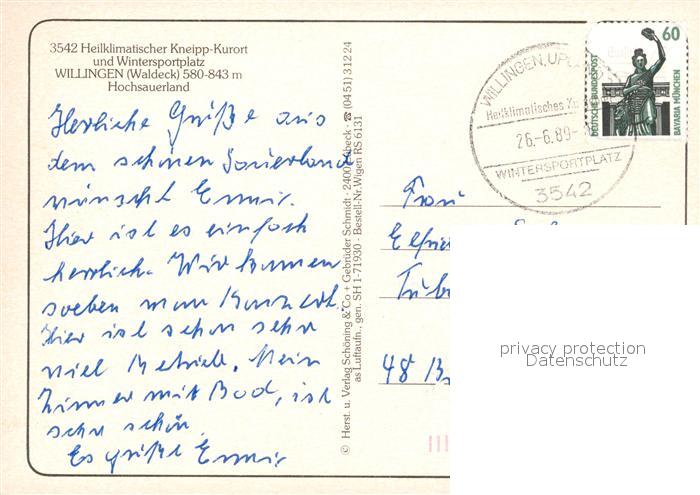 3542 Heilklimatischer Kneipp-Kurort
und Wintersportplatz
WILLINGEN (Waldeck) 580-843 m
Hochsauerland
Herrliche Grüße aus
dem schönen Sauerland
wünscht Ennir.
Hier ist es einfach
herrlich. Wir kommen
soeben vom Konzert.
Hier ist schon sehr
viel Betrieb. Mein
Zimmer mit Bad, ist
sehr schön.
Es grüßt
© Herst. u. Verlag Schöning & Co + Gebrüder Schmidt · 2400 Lübeck · ☎ (04 51) 3 12 24
as Luftaufn., gen. SH 1-71930 · Bestell-Nr. Wigen RS 6131
WILLINGEN, UPL
Heilklimatisches
26.-6.89-
WINTERSPORTPLATZ
3542
60
DEUTSCHE BUNDESPOST
BAVARIA MÜNCHEN
Frau
Elfrie
48 B
privacy protection
Datenschutz